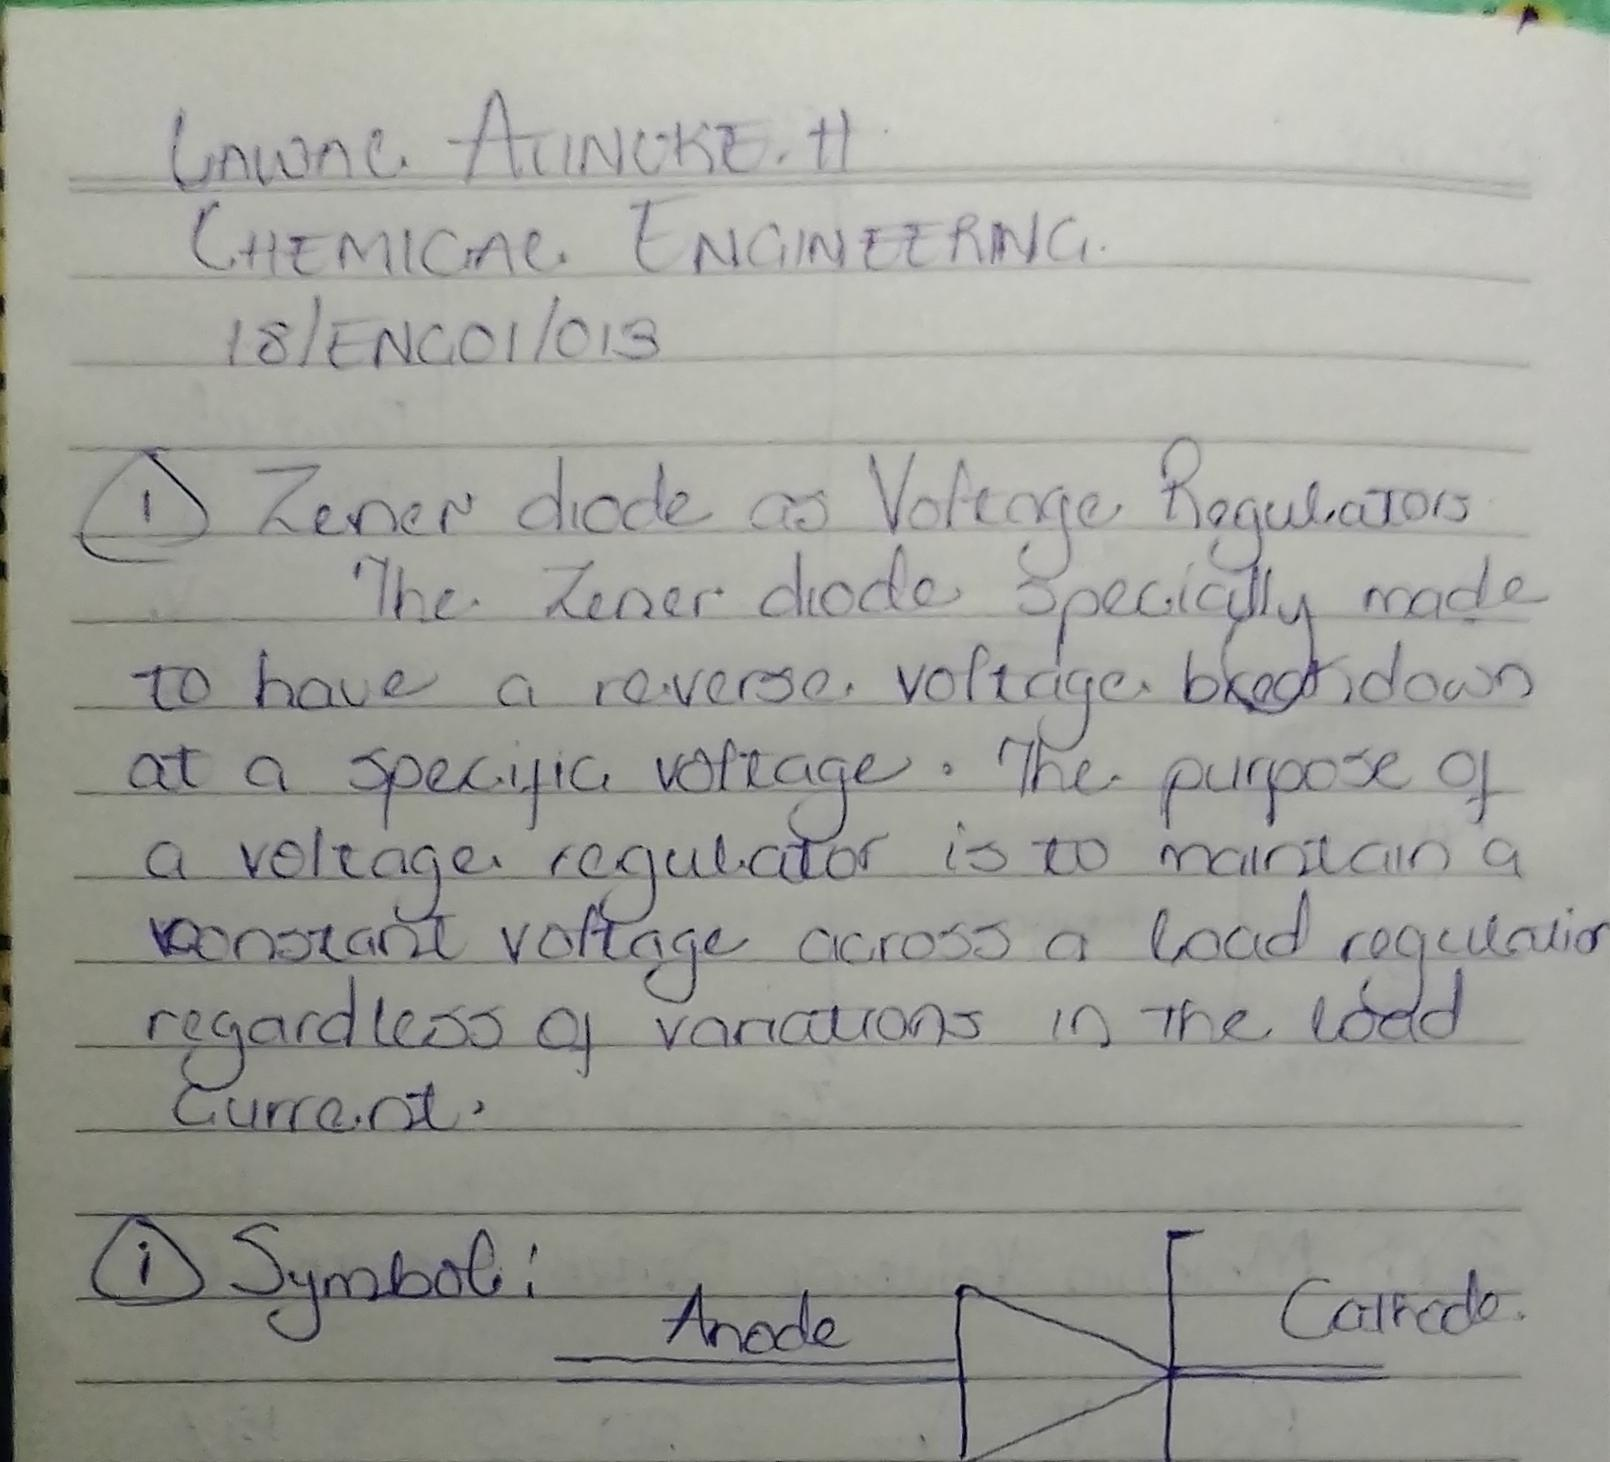 LAWAL ATINUKE. H
CHEMICAL ENGINEERING.
18/ENG01/013
1 Zener diode as Voltage Regulators
The Zener diode specially made
to have a reverse voltage breakdown
at a specific voltage. The purpose of
a voltage regulator is to maintain a
constant voltage across a load regulation
regardless of variations in the load
Current.
i Symbol:
Anode
Cathode.